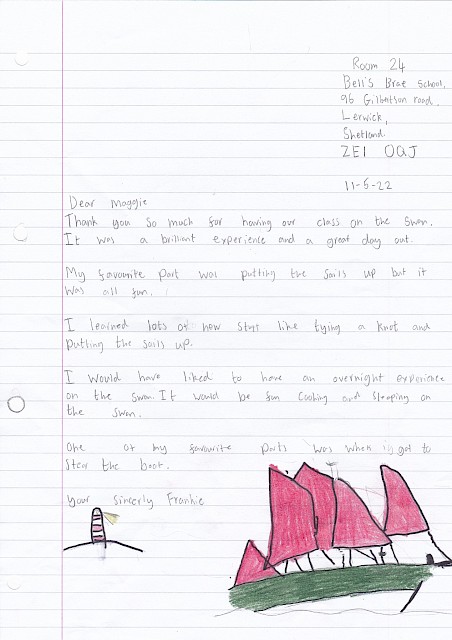 Room 24
Bell's Brae School,
96 Gilbertson road,
Lerwick,
Shetland.
ZE1 0QJ
11-5-22
Dear Maggie
Thank you so much for having our class on the Swan.
It was a brilliant experience and a great day out.
My favourite part was putting the sails up but it
was all fun.
I learned lots of new stuf like tying a knot and
putting the sails up.
I would have liked to have an overnight experience
on the swan. It would be fun cooking and sleeping on
the swan.
One of my favourite parts was when i got to
steer the boat.
your sincerly Frankie